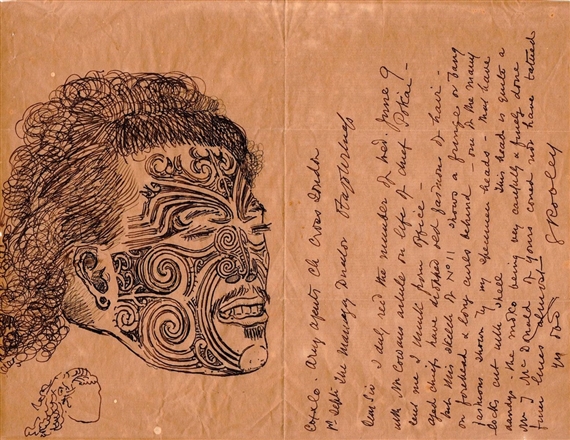 Army agents Ch Cross London
The Managing Director
Dear Sir I duly recd the number of Wed. June 9
with Mr Cowans article on life of chief Pokai -
sent me I from office -
aged chiefs have old fashions of hair
but this sketch of No 11 shows a fringe or bang
on forehead & long curls behind - one of the many
fashions shown by my specimen heads - most have
locks cut with shell This head is quite a
dandy - the moko being very carefully & finely done
Mr J McDonald of yours could not have tatued
finer lines almost
G Robley